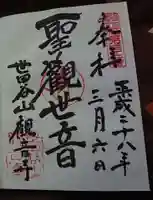 奉拝
平成二十八年
三月六日
聖觀世音
世田谷山觀音寺